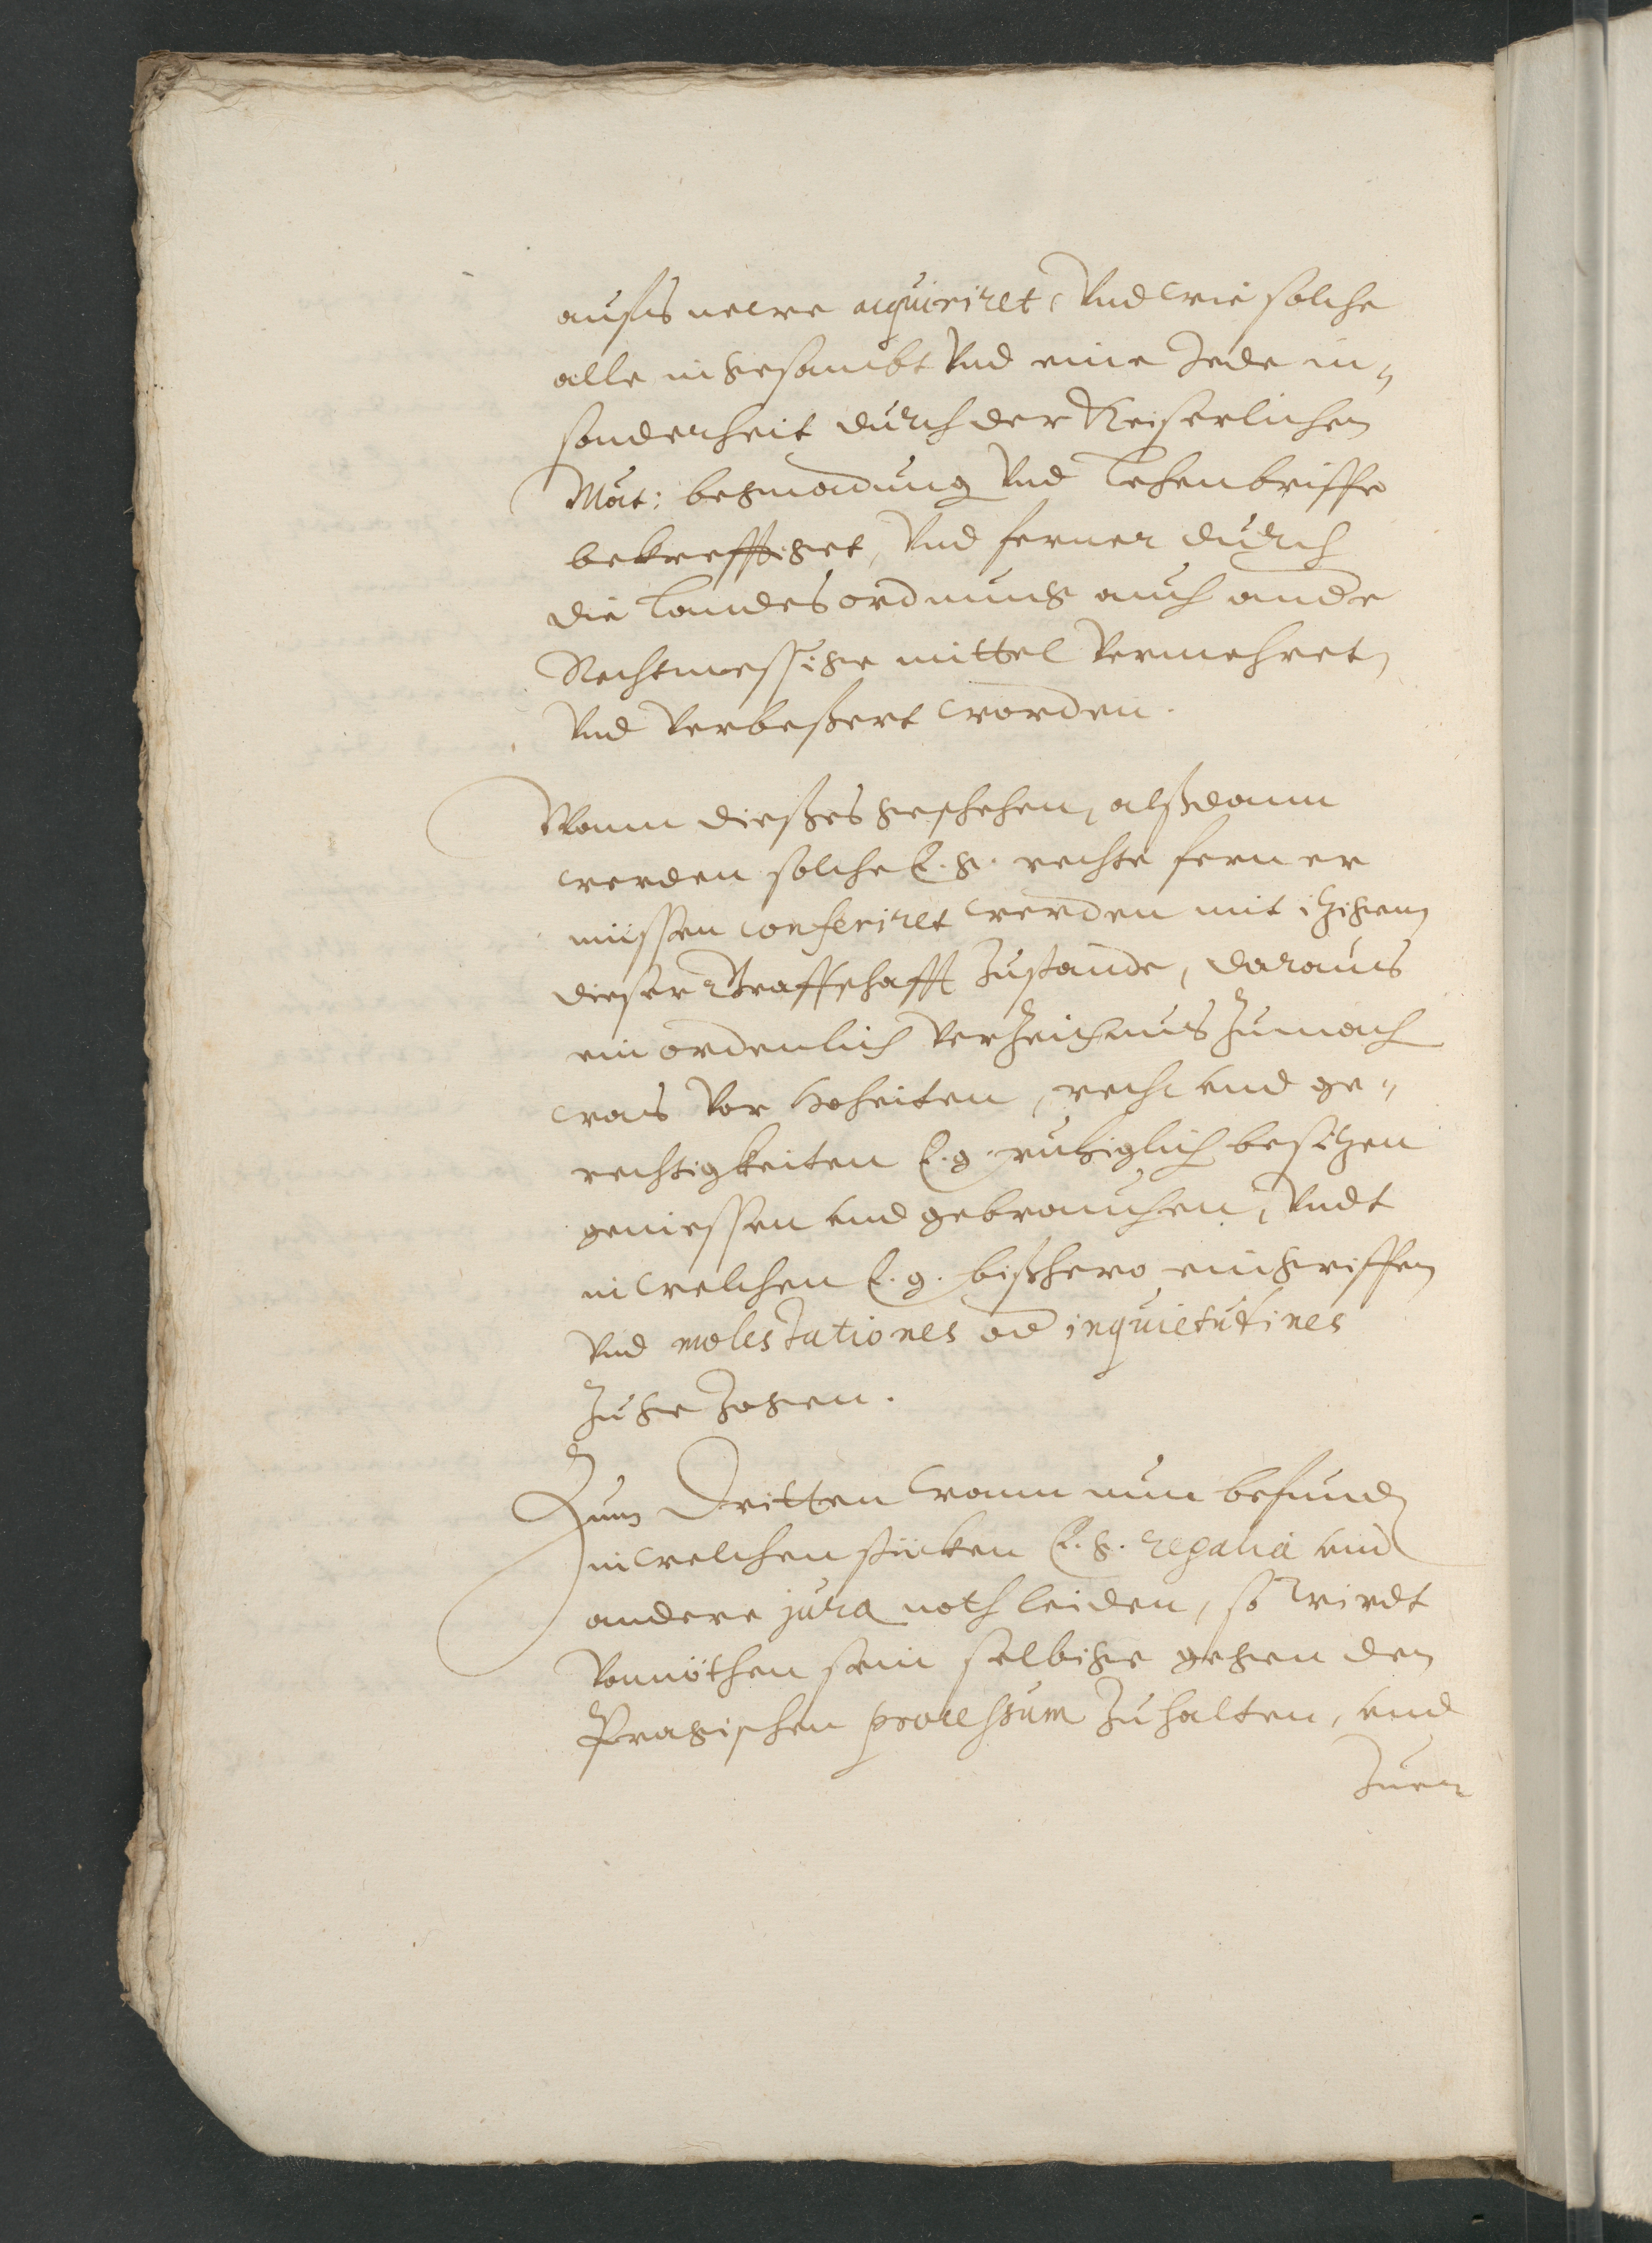 aufs newe acquiriret, Vnd wie solche
alle in gesambt Vnd eine Jede in„
sonderheit durch der Keiserlichen
Mat: begnadung Vnd Lehenbriffe
bekrefftiget, Vnd ferner durch
die Landesordnung auch ande
Rechtmessige mittel Vermehret,
Vnd Verbeßert worden.
Wann dießes geschehen, alßdann
werden solche E. g. rechte ferner
müssen conferiret werden mit itzigem
dieser Graffschafft Zustande, daraus
ein ordenlich Verzeichnus Zumach
was Vor Hoheiten, recht und ge„
rechtigkeiten E. g. ruhiglich besitzen
geniessen und gebrauchen, Vndt
in welchen E. g. bißhero eingriffen
Vnd molestationes od inquietudines
Zugezogen.
Zum Dritten wann nun befund
in welchen stücken E. g. regalia und
andere jura noth leiden, so wirdt
Vonnöthen sein selbige gegen den
Pragischen processum Zuhalten, und
Zuer